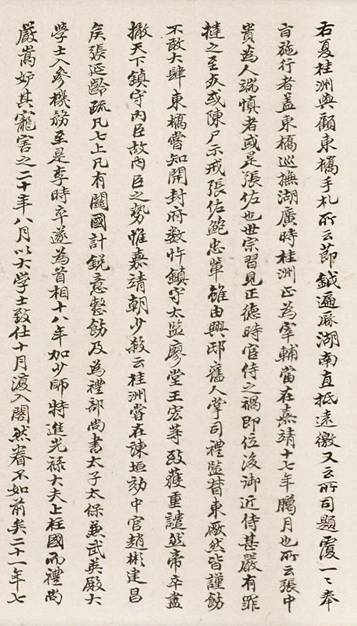 右夏桂洲與顧東橋手札所云節鉞遍麻湖南直抵遠徼又云所司題覆一一奉
旨施行者蓋東橋巡撫湖廣時桂洲正為宰輔當在嘉靖十七年臈月也所云張中
貴為人端慎者或是張佐也世宗習見正德時官侍之禍即位後御近侍甚嚴有罪
撻之至死或陳尸示戒張佐鮑忠輩雖由興邸舊人掌司禮監督東厰然皆謹飭
不敢大肆東橋嘗知開封府數忤鎮守太監廖堂王宏等致薙重譴然帝卒盡
撤天下鎮守內臣故內臣之勢惟嘉靖朝少殺云桂洲嘗在諫垣劾中官趙彬建昌
矦張延齡疏凡七上凡有關國計銳意整飭及為禮部尚書太子太保兼武英殿大
學士入參機務至是李時卒遂為首相十八年加少師特進光祿大夫上柱國而禮尚
嚴嵩妒其寵害之二十年八月以大學士致仕十月復入閣然眷不如前矣二十一年七